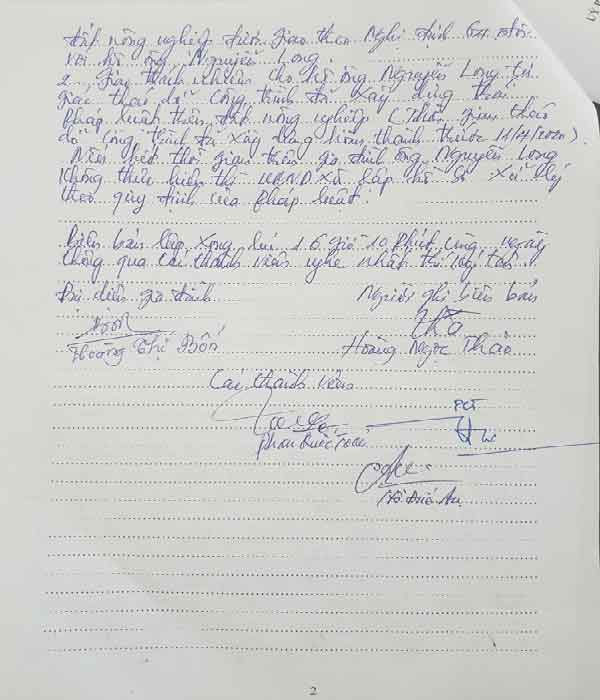 đất nông nghiệp được giao theo Nghị định 64 đối
với hộ ông Nguyễn Long.
2, Giao trách nhiệm cho hộ ông Nguyễn Long tự
giác tháo dỡ công trình đã xây dựng trái
pháp luật trên đất nông nghiệp (Thời gian tháo
dỡ công trình đã xây dựng hoàn thành trước 11/4/2020).
Nếu hết thời gian trên gia đình ông Nguyễn Long
không thực hiện thì UBND xã lập hồ sơ xử lý
theo quy định của pháp luật.
Biên bản lập xong lúc 16 giờ 10 phút cùng ngày
thông qua các thành viên nghe nhất trí ký tên.
Đại diện gia đình
Người ghi biên bản
Hoàng Thị Bốn
Hoàng Ngọc Thảo
Các thành viên
Phan Quốc
PCT
2